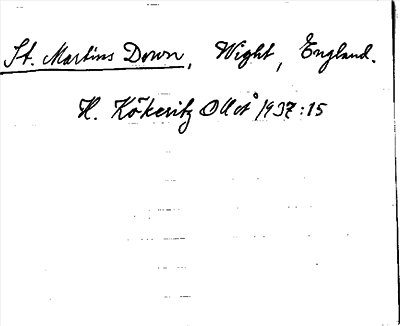 St. Martins Down, Wight, England.
H. Kökeritz OUÅ 1937:15